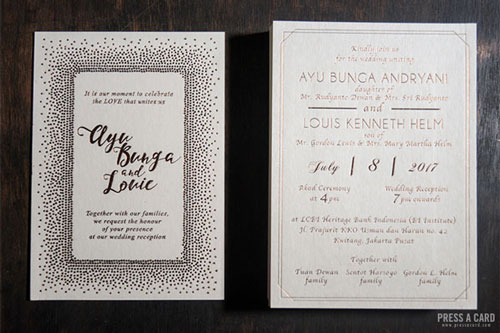 It is our moment to celebrate
the LOVE that unites us
Ayu
Bunga
and
Louie
Together with our families,
we request the honour
of your presence
at our wedding reception
Kindly join us
for the wedding uniting
AYU BUNGA ANDRYANI
daughter of
Mr. Rudyanto Denan & Mrs. Sri Rudyanto
and
LOUIS KENNETH HELM
son of
Mr. Gordon Leuis & Mrs. Mary Martha Helm
July | 8 | 2017
Ceremony
at 4pm
Wedding Reception
7pm onwards
at LCBI Heritage Bank Indonesia (BI Institute)
Jl. Prajurit KKO Usman dan Harun no. 42
Kwitang, Jakarta Pusat
Together with
Tuan Denan
family
Sentot Harsogo
family
Gordon L. Helm
family
PRESS A CARD
www.pressacard.com